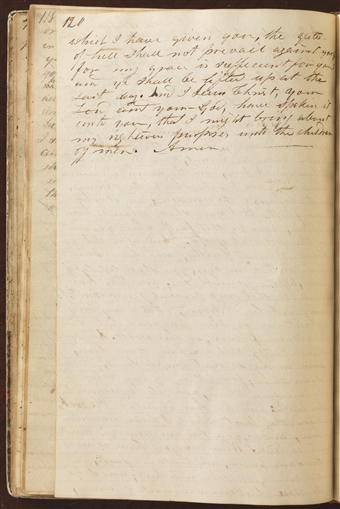 128
which I have given you, the gates
of hell shall not prevail against you
for my grace is sufficient for you
and ye shall be lifted up at the
last day. And I Jesus Christ, your
Lord and your God, have spoken it
unto you, that I might bring about
my righteous purposes unto the children
of men. Amen.